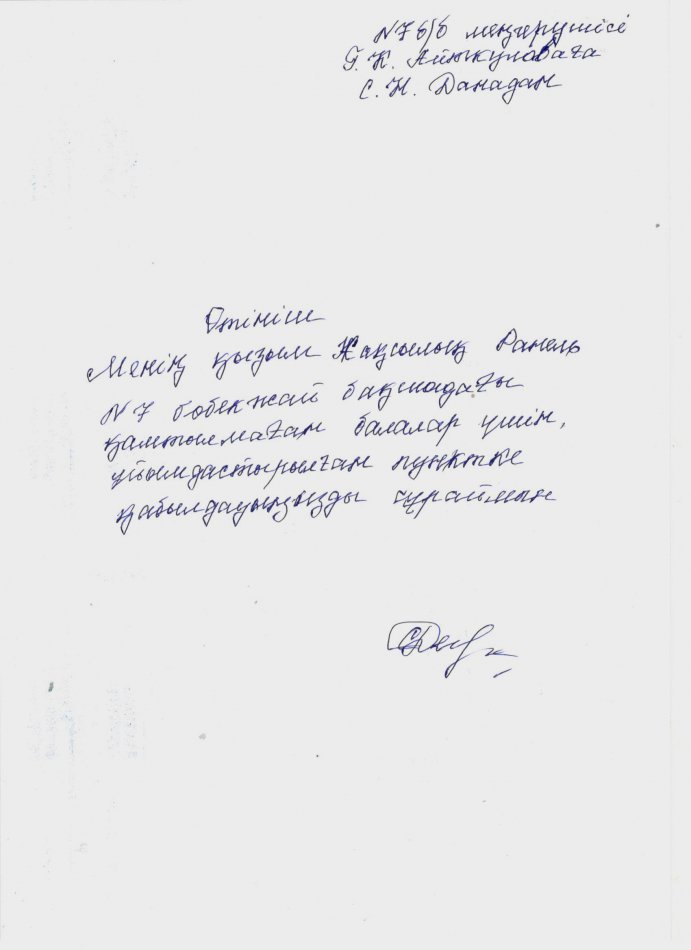 N7 б/б меңгерушісі
Г. К. Айткуловаға
С. Н. Данадан
Өтініш
Менің қызым Жақсылық Ранель
N7 бөбекжай бақшадағы
қамтылмаған балалар үшін,
ұйымдастырылған пунктке
қабылдауыңызды сұраймын